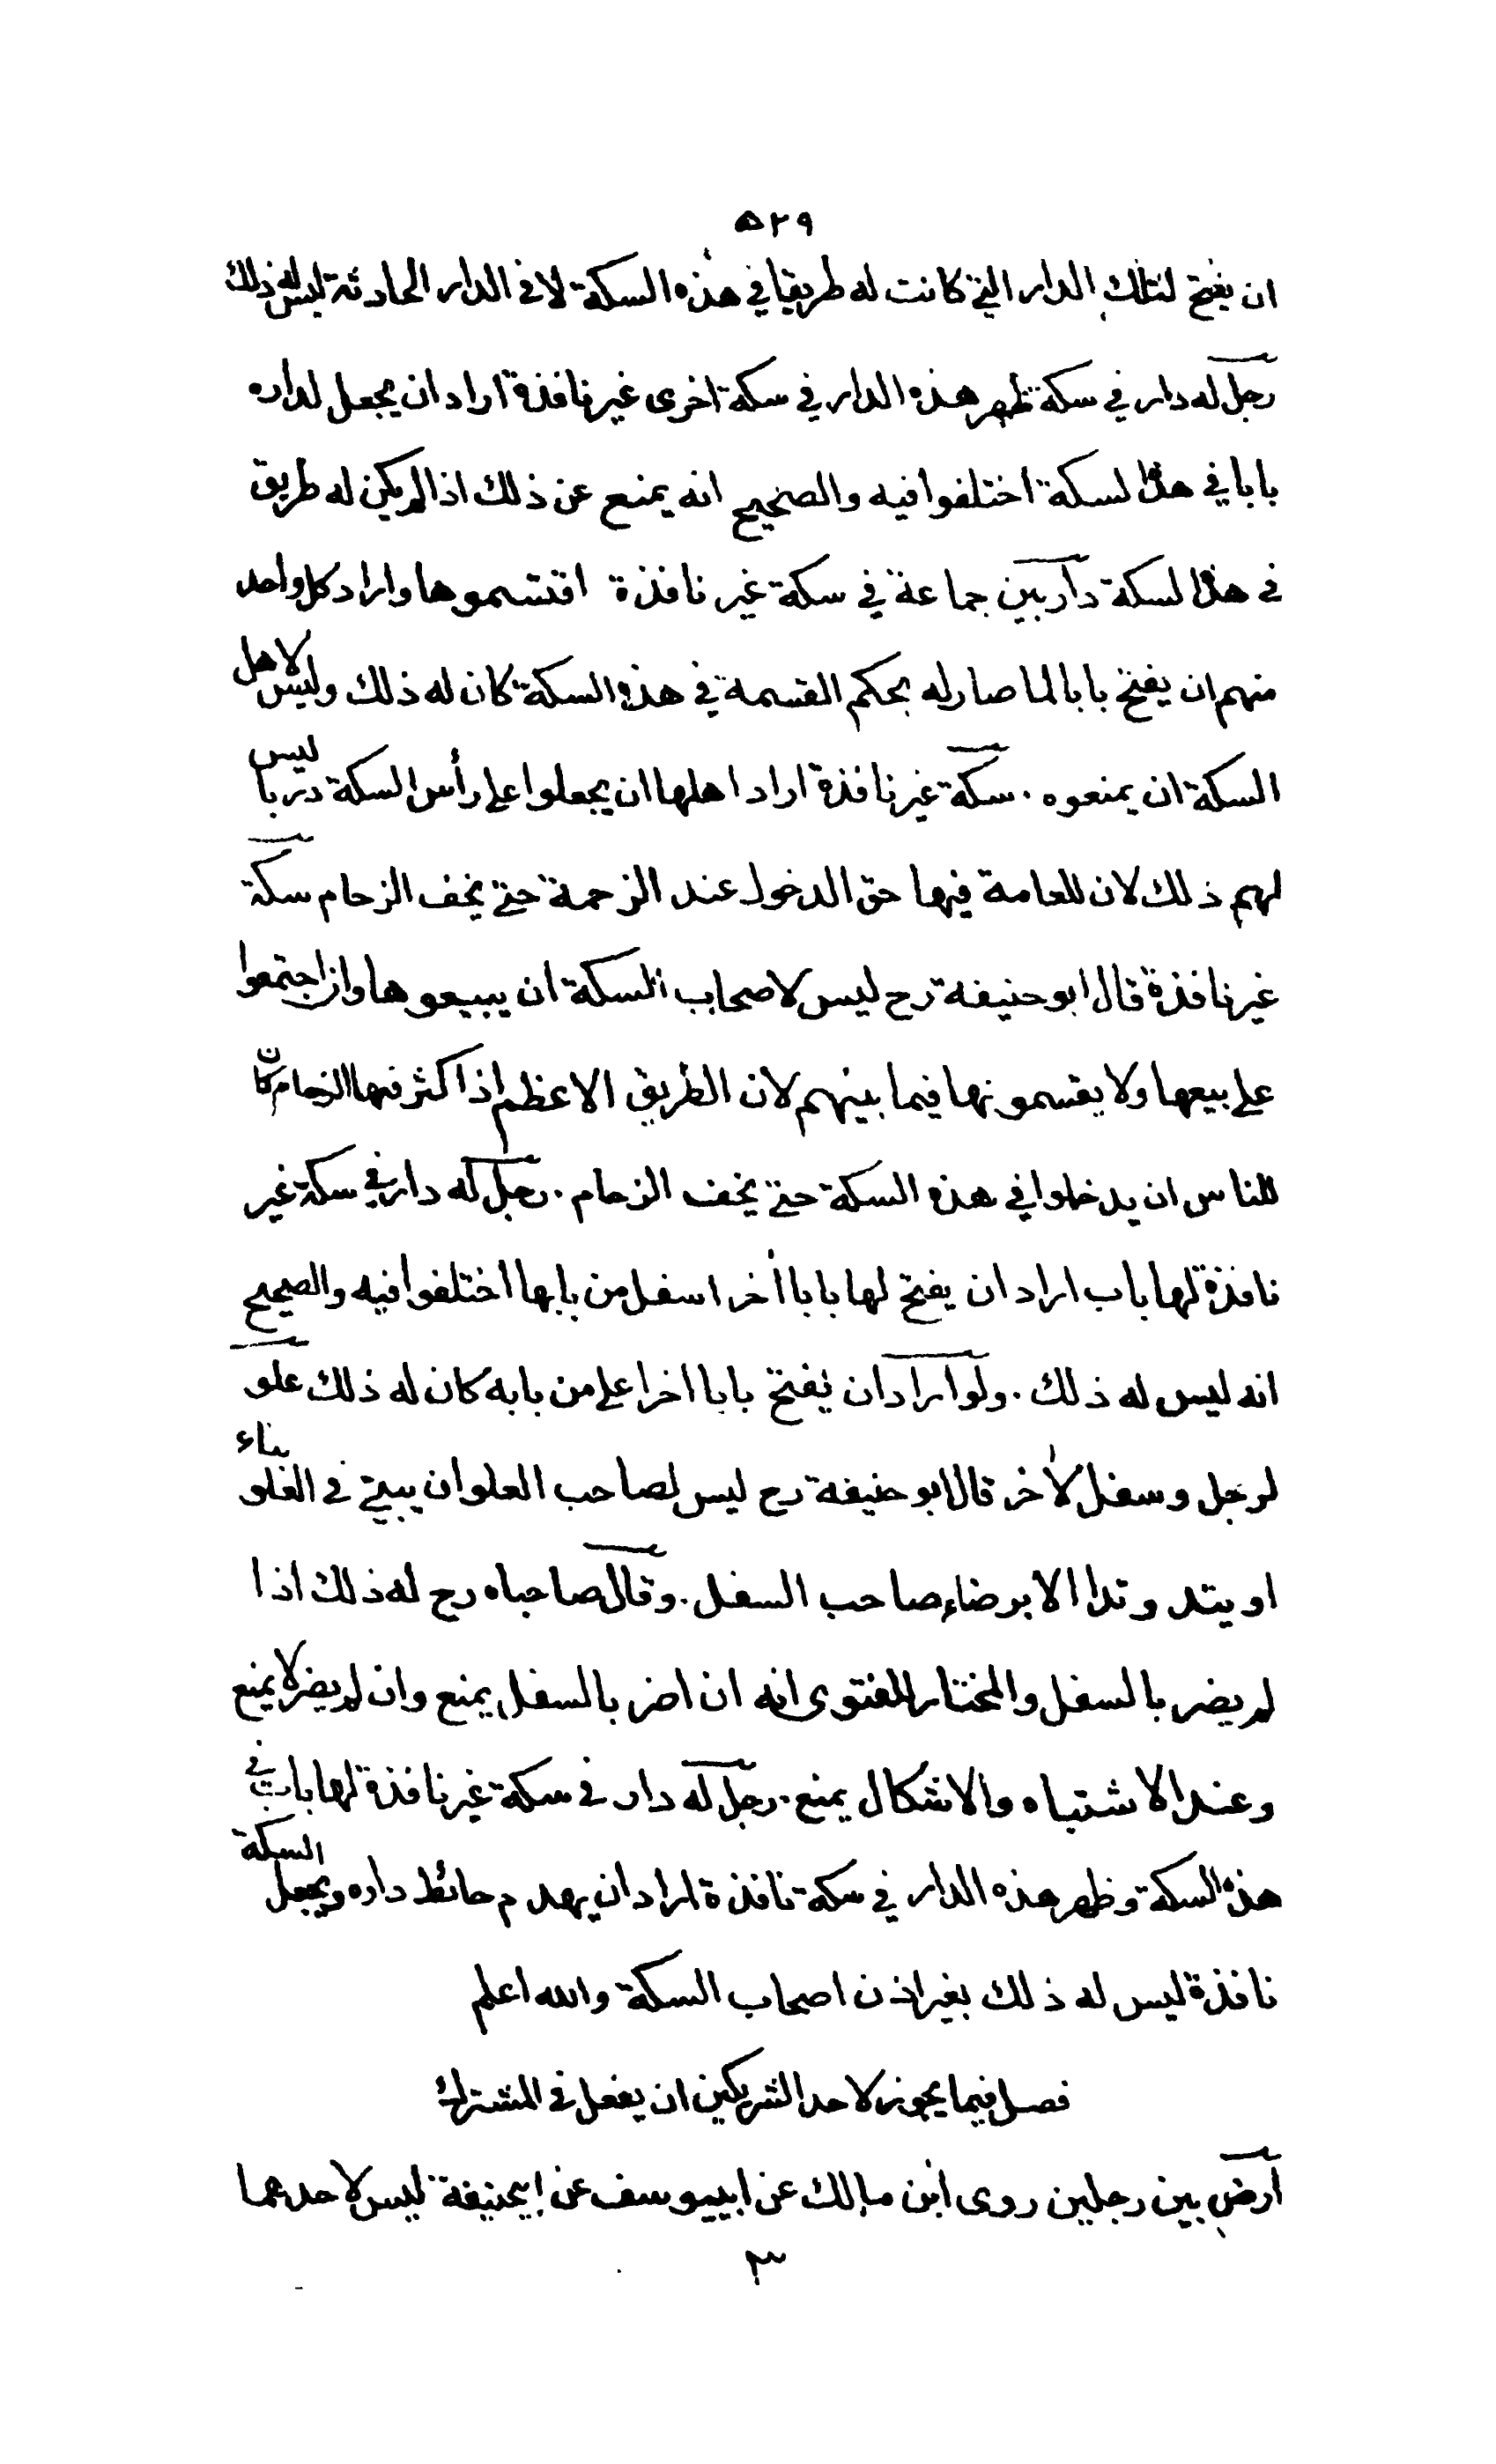 ٥٢٩
ان يفتح لتلك الدار التي كانت له طريقا في هذه السكة لا في الدار الحادثة ليس له ذلك
رجل له دار في سكة ظهر هذه الدار في سكة اخرى غير نافذة اراد ان يجعل لداره
بابا في هذه السكة اختلفوا فيه والصحيح انه يمنع عن ذلك اذا لم يكن له طريق
في هذه السكة دار بين جماعة في سكة غير نافذة اقتسموها واراد كل واحد
منهم ان يفتح بابا لما صار له بحكم القسمة في هذه السكة كان له ذلك وليس لاهل
السكة ان يمنعوه . سكة غير نافذة اراد اهلها ان يجعلوا على رأس السكة دربا ليس
لهم ذلك لان للعامة فيها حق الدخول عند الزحمة حتى يخف الزحام سكة
غير نافذة قال ابو حنيفة رح ليس لاصحاب السكة ان يبيعوها وان اجتمعوا
على بيعها ولا يقسمونها فيما بينهم لان الطريق الاعظم اذا كثر فيها الزحام كان
للناس ان يدخلوا في هذه السكة حتى يخف الزحام . رجل له دار في سكة غير
نافذة لها باب اراد ان يفتح لها بابا أخر اسفل من بابها اختلفوا فيه والصحيح
انه ليس له ذلك . ولو اراد ان يفتح بابا اخر اعلى من بابه كان له ذلك علو
لرجل وسفل لأخر قال ابو حنيفة رح ليس لصاحب العلو ان يبني في العلو بناء
او يتد وتدا الا برضاء صاحب السفل . وقال صاحباه رح له ذلك اذا
لم يضر بالسفل والمختار للفتوى انه ان اضر بالسفل يمنع وان لم يضر لا يمنع
وعند الاشتباه والاشكال يمنع . رجل له دار في سكة غير نافذة لها باب في
هذه السكة وظهر هذه الدار في سكة نافذة اراد ان يهدم حائط داره ويجعل السكة
نافذة ليس له ذلك بغير اذن اصحاب السكة والله اعلم
فصل فيما يجوز لاحد الشريكين ان يفعل في المشترك
ارض بين رجلين روى ابن مالك عن ابييوسف عن ابيحنيفة ليس لاحدهما